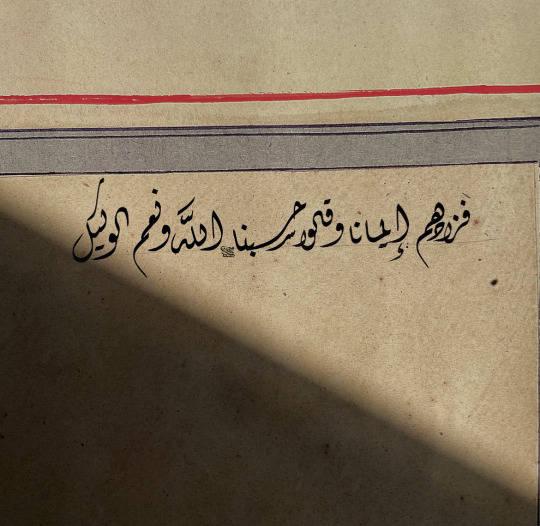 فزادهم إيمانا وقالوا حسبنا الله ونعم الوكيل